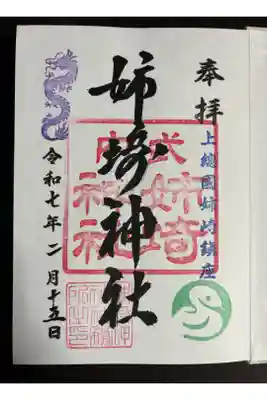 奉拝
上總國姉埼鎮座
姉埼神社
式内
姉埼
神社
令和七年二月十五日